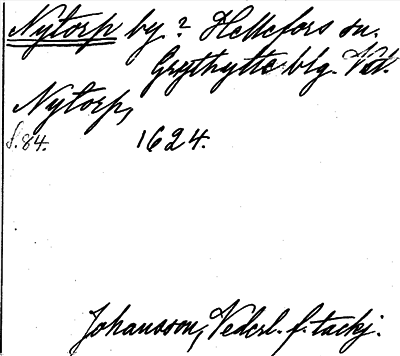 Nytorp by? Hellefors sn.
Grythytte blg. Vstl.
Nytorp,
s. 84. 1624.
Johansson, Vederl. f. tackj.